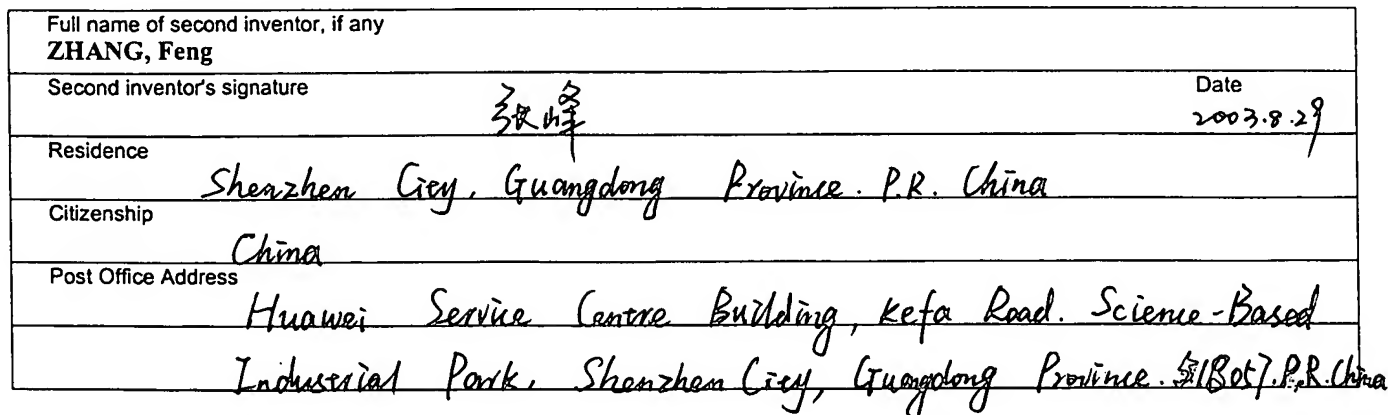 Full name of second inventor, if any
ZHANG, Feng
Second inventor's signature
张峰
Date
2003.8.29
Residence
Shenzhen City. Guangdong Province. P.R. China
Citizenship
China
Post Office Address
Huawei Service Centre Building, Kefa Road. Science-Based
Industrial Park. Shenzhen City, Guangdong Province. 518057. P.R. China